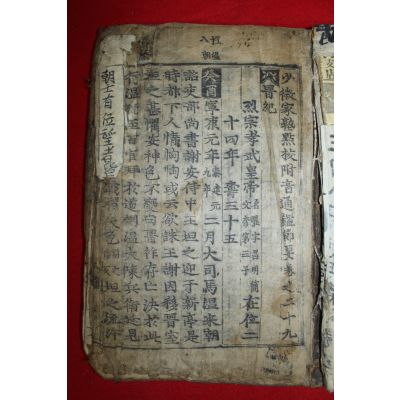 少微家塾點校附音通鑑節要卷之二十九
晉紀
烈宗孝武皇帝 名曜字昌明簡文帝第三子 在位二
十四年 壽三十五
癸酉 寧康元年 秦建元九年 二月大司馬溫來朝
詔吏部尚書謝安侍中王坦之迎于新亭是
時都下人情恟恟或云欲誅王謝因移晉室
坦之甚懼安神色不變曰晉祚存亡決於此
行溫旣至百官拜於道側溫大陳兵衛延見
朝士 位 者 色坦之流汗